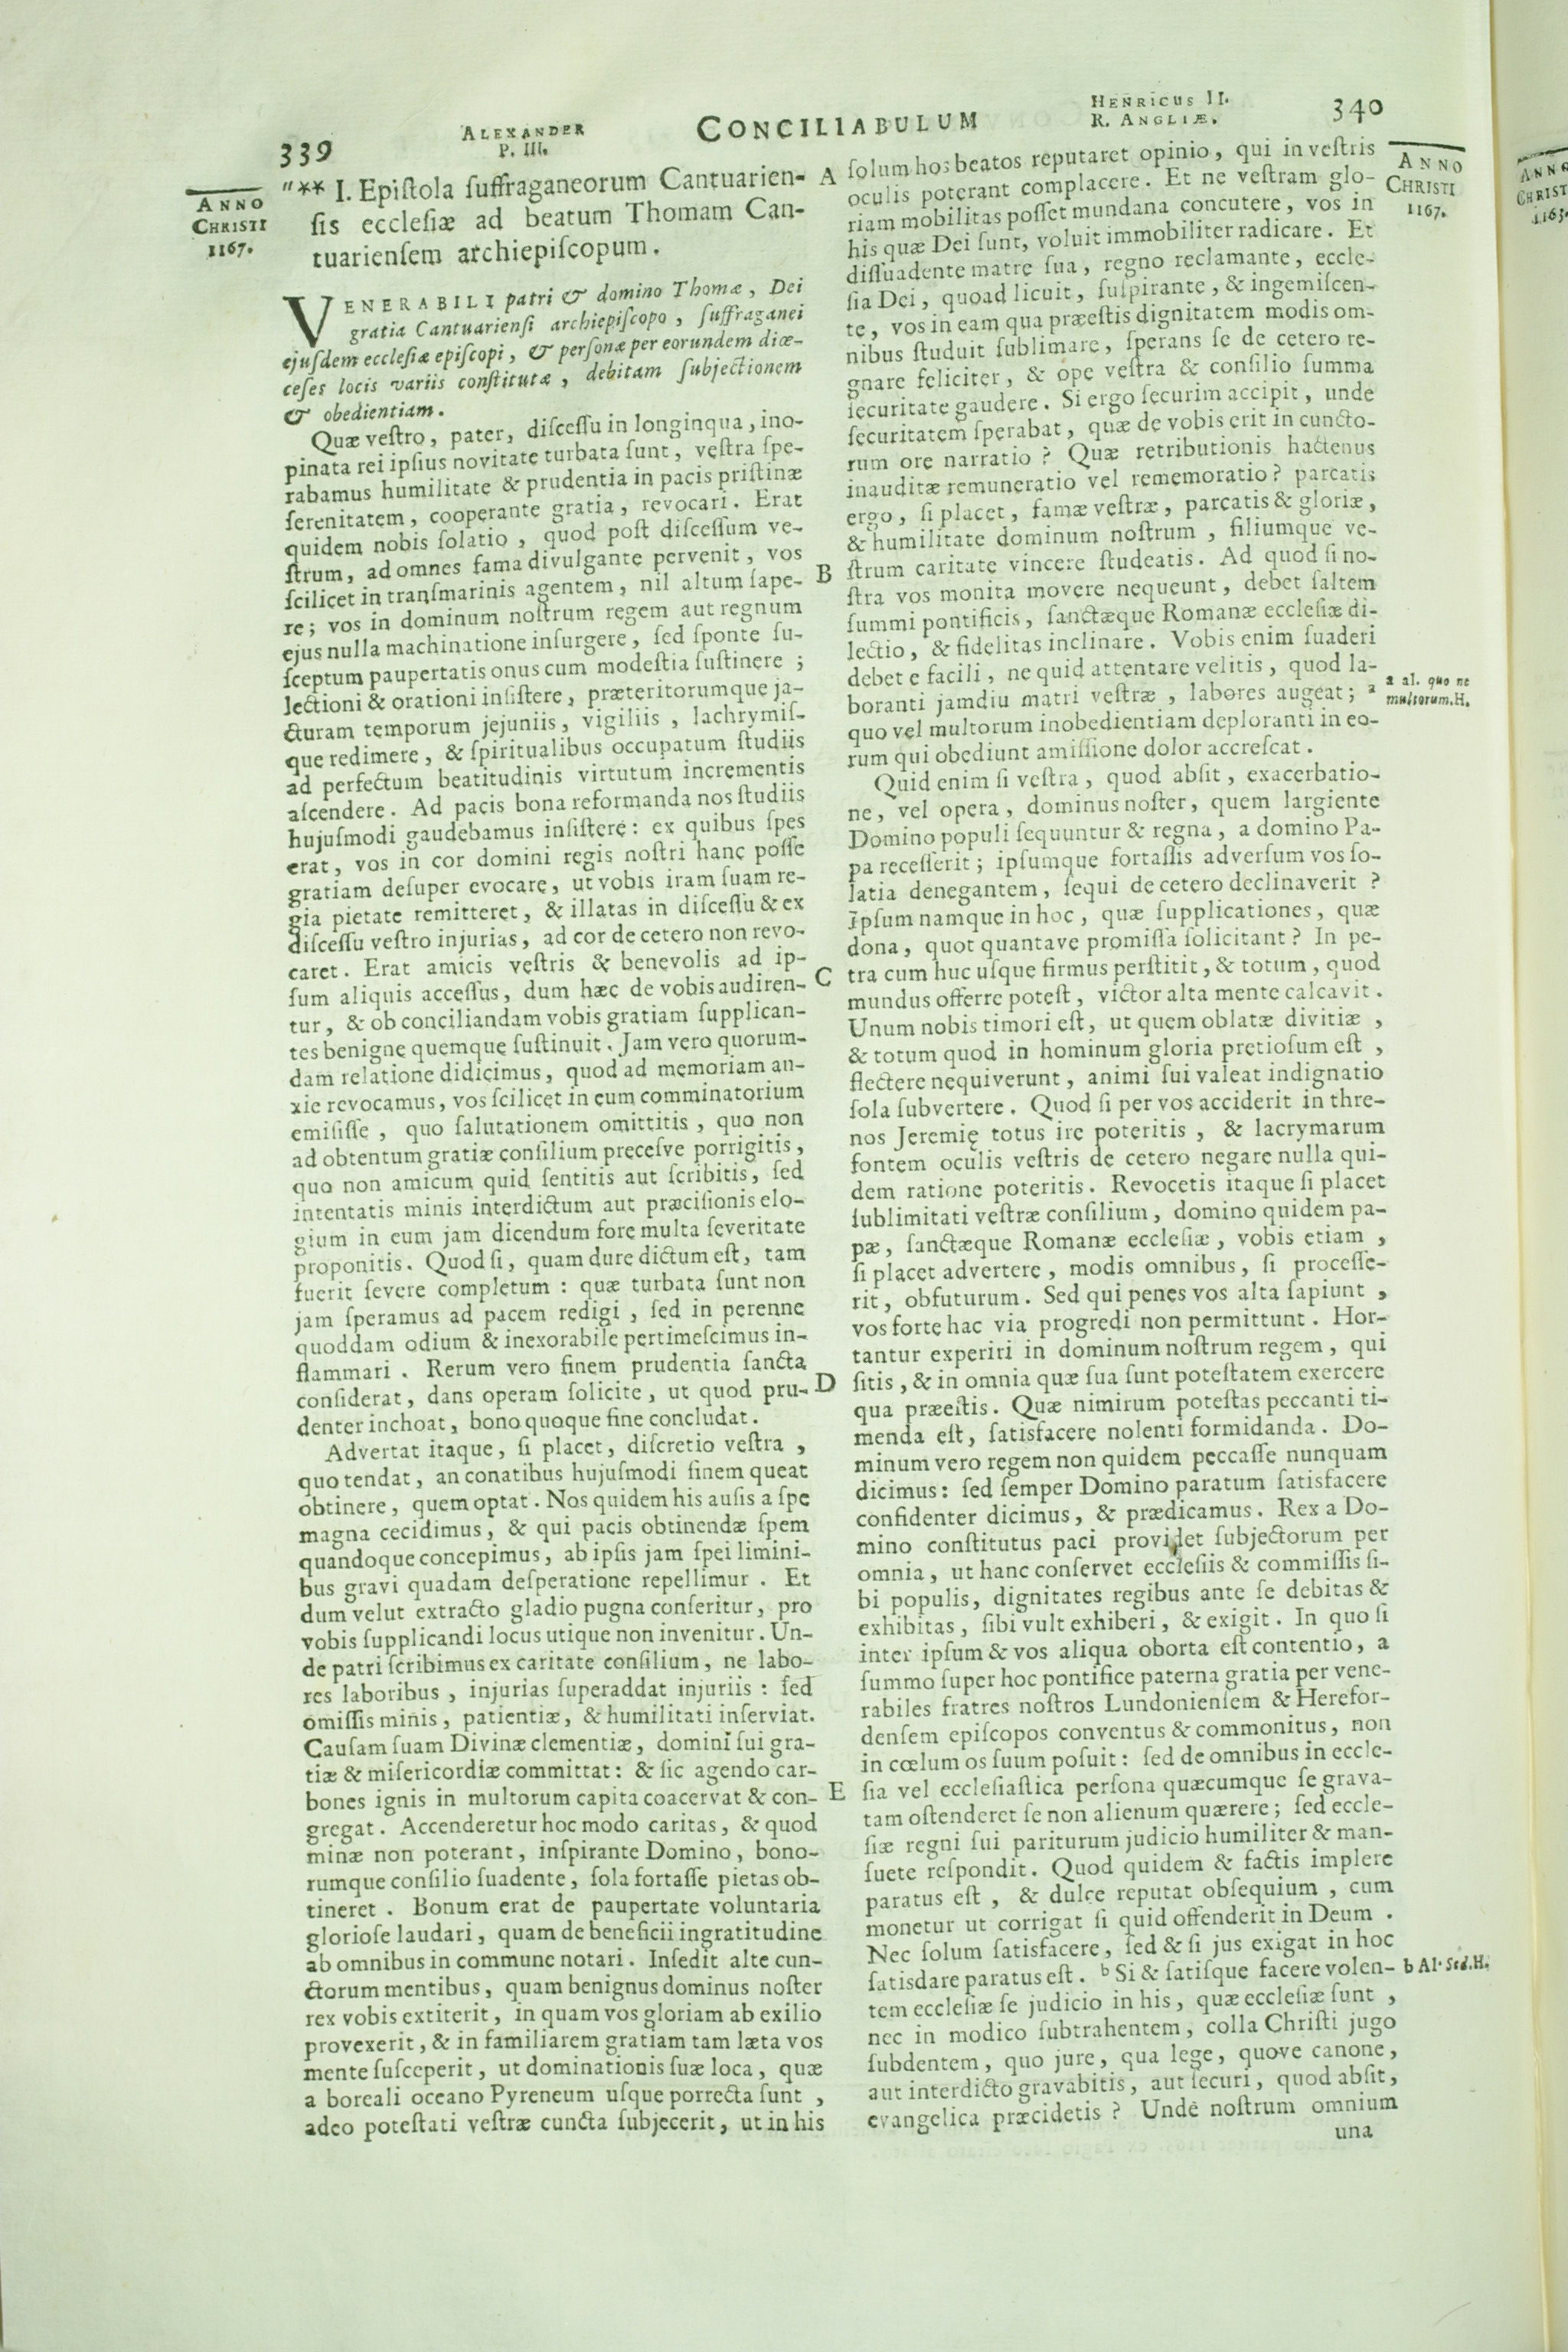 339
ALEXANDER
P. III.
CONCILIABULUM
HENRICUS II.
R. ANGLIÆ.
340
ANNO
CHRISTI
1167.
"** I. Epiſtola ſuffraganeorum Cantuarien-
ſis eccleſiæ ad beatum Thomam Can-
tuarienſem archiepiſcopum.
VENERABILI patri & domino Thomæ, Dei
gratia Cantuarienſi archiepiſcopo, ſuffraganei
ejuſdem eccleſiæ epiſcopi, & perſonæ per eorundem diœ-
ceſes locis variis conſtitutæ, debitam ſubjectionem
& obedientiam.
Quæ veſtro, pater, diſceſſu in longinqua, ino-
pinata rei ipſius novitate turbata ſunt, veſtra ſpe-
rabamus humilitate & prudentia in pacis priſtinæ
ſerenitatem, cooperante gratia, revocari. Erat
quidem nobis ſolatio, quod poſt diſceſſum ve-
ſtrum, ad omnes fama divulgante pervenit, vos
ſcilicet in tranſmarinis agentem, nil altum ſape-
re; vos in dominum noſtrum regem aut regnum
ejus nulla machinatione inſurgere, ſed ſponte ſu-
ſceptum paupertatis onus cum modeſtia ſuſtinere;
lectioni & orationi inſiſtere, præteritorumque ja-
cturam temporum jejuniis, vigiliis, lachrymiſ-
que redimere, & ſpiritualibus occupatum ſtudiis
ad perfectum beatitudinis virtutum incrementis
aſcendere. Ad pacis bona reformanda nos ſtudiis
hujuſmodi gaudebamus inſiſtere: ex quibus ſpes
erat, vos in cor domini regis noſtri hanc poſſe
gratiam deſuper evocare, ut vobis iram ſuam re-
gia pietate remitteret, & illatas in diſceſſu & ex
diſceſſu veſtro injurias, ad cor de cetero non revo-
caret. Erat amicis veſtris & benevolis ad ip-
ſum aliquis acceſſus, dum hæc de vobis audiren-
tur, & ob conciliandam vobis gratiam ſupplican-
tes benigne quemque ſuſtinuit. Jam vero quorum-
dam relatione didicimus, quod ad memoriam an-
xie revocamus, vos ſcilicet in eum comminatorium
emiſiſſe, quo ſalutationem omittitis, quo non
ad obtentum gratiæ conſilium preceſve porrigitis,
quo non amicum quid ſentitis aut ſcribitis, ſed
intentatis minis interdictum aut præciſionis elo-
gium in eum jam dicendum fore multa ſeveritate
proponitis. Quod ſi, quam dure dictum eſt, tam
fuerit ſevere completum: quæ turbata ſunt non
jam ſperamus ad pacem redigi, ſed in perenne
quoddam odium & inexorabile pertimeſcimus in-
flammari. Rerum vero finem prudentia ſancta
conſiderat, dans operam ſolicite, ut quod pru-
denter inchoat, bono quoque fine concludat.
Advertat itaque, ſi placet, diſcretio veſtra,
quo tendat, an conatibus hujuſmodi finem queat
obtinere, quem optat. Nos quidem his auſis a ſpe
magna cecidimus, & qui pacis obtinendæ ſpem
quandoque concepimus, ab ipſis jam ſpei limini-
bus gravi quadam deſperatione repellimur. Et
dum velut extracto gladio pugna conſeritur, pro
vobis ſupplicandi locus utique non invenitur. Un-
de patri ſcribimus ex caritate conſilium, ne labo-
res laboribus, injurias ſuperaddat injuriis: ſed
omiſſis minis, patientiæ, & humilitati inſerviat.
Cauſam ſuam Divinæ clementiæ, domini ſui gra-
tiæ & miſericordiæ committat: & ſic agendo car-
bones ignis in multorum capita coacervat & con-
gregat. Accenderetur hoc modo caritas, & quod
minæ non poterant, inſpirante Domino, bono-
rumque conſilio ſuadente, ſola fortaſſe pietas ob-
tineret. Bonum erat de paupertate voluntaria
glorioſe laudari, quam de beneficii ingratitudine
ab omnibus in commune notari. Inſedit alte cun-
ctorum mentibus, quam benignus dominus noſter
rex vobis extiterit, in quam vos gloriam ab exilio
provexerit, & in familiarem gratiam tam læta vos
mente ſuſceperit, ut dominationis ſuæ loca, quæ
a boreali oceano Pyreneum uſque porrecta ſunt,
adeo poteſtati veſtræ cuncta ſubjecerit, ut in his
A
B
C
D
E
ſolum hos beatos reputaret opinio, qui in veſtris
oculis poterant complacere. Et ne veſtram glo-
riam mobilitas poſſet mundana concutere, vos in
his quæ Dei ſunt, voluit immobiliter radicare. Et
diſſuadente matre ſua, regno reclamante, eccle-
ſia Dei, quoad licuit, ſuſpirante, & ingemiſcen-
te, vos in eam qua præeſtis dignitatem modis om-
nibus ſtuduit ſublimare, ſperans ſe de cetero re-
gnare feliciter, & ope veſtra & conſilio ſumma
ſecuritate gaudere. Si ergo ſecurim accipit, unde
ſecuritatem ſperabat, quæ de vobis erit in cuncto-
rum ore narratio? Quæ retributionis hactenus
inauditæ remuneratio vel rememoratio? parcatis
ergo, ſi placet, famæ veſtræ, parcatis & gloriæ,
& humilitate dominum noſtrum, filiumque ve-
ſtrum caritate vincere ſtudeatis. Ad quod ſi no-
ſtra vos monita movere nequeunt, debet ſaltem
ſummi pontificis, ſanctæque Romanæ eccleſiæ di-
lectio, & fidelitas inclinare. Vobis enim ſuaderi
debet e facili, ne quid attentare velitis, quod la-
boranti jamdiu matri veſtræ, labores augeat; a
quo vel multorum inobedientiam deploranti in eo-
rum qui obediunt amiſſione dolor accreſcat.
Quid enim ſi veſtra, quod abſit, exacerbatio-
ne, vel opera, dominus noſter, quem largiente
Domino populi ſequuntur & regna, a domino Pa-
pa receſſerit; ipſumque fortaſſis adverſum vos ſo-
latia denegantem, ſequi de cetero declinaverit?
Ipſum namque in hoc, quæ ſupplicationes, quæ
dona, quot quantave promiſſa ſolicitant? In pe-
tra cum huc uſque firmus perſtitit, & totum, quod
mundus offerre poteſt, victor alta mente calcavit.
Unum nobis timori eſt, ut quem oblatæ divitiæ,
& totum quod in hominum gloria pretioſum eſt,
flectere nequiverunt, animi ſui valeat indignatio
ſola ſubvertere. Quod ſi per vos acciderit in thre-
nos Jeremię totus ire poteritis, & lacrymarum
fontem oculis veſtris de cetero negare nulla qui-
dem ratione poteritis. Revocetis itaque ſi placet
ſublimitati veſtræ conſilium, domino quidem pa-
pæ, ſanctæque Romanæ eccleſiæ, vobis etiam,
ſi placet advertere, modis omnibus, ſi proceſſe-
rit, obfuturum. Sed qui penes vos alta ſapiunt,
vos forte hac via progredi non permittunt. Hor-
tantur experiri in dominum noſtrum regem, qui
ſitis, & in omnia quæ ſua ſunt poteſtatem exercere
qua præeſtis. Quæ nimirum poteſtas peccanti ti-
menda eſt, ſatisfacere nolenti formidanda. Do-
minum vero regem non quidem peccaſſe nunquam
dicimus: ſed ſemper Domino paratum ſatisfacere
confidenter dicimus, & prædicamus. Rex a Do-
mino conſtitutus paci providet ſubjectorum per
omnia, ut hanc conſervet eccleſiis & commiſſis ſi-
bi populis, dignitates regibus ante ſe debitas &
exhibitas, ſibi vult exhiberi, & exigit. In quo ſi
inter ipſum & vos aliqua oborta eſt contentio, a
ſummo ſuper hoc pontifice paterna gratia per vene-
rabiles fratres noſtros Lundonienſem & Herefor-
denſem epiſcopos conventus & commonitus, non
in cœlum os ſuum poſuit: ſed de omnibus in eccle-
ſia vel eccleſiaſtica perſona quæcumque ſe grava-
tam oſtenderet ſe non alienum quærere; ſed eccle-
ſiæ regni ſui pariturum judicio humiliter & man-
ſuete reſpondit. Quod quidem & factis implere
paratus eſt, & dulce reputat obſequium, cum
monetur ut corrigat ſi quid offenderit in Deum.
Nec ſolum ſatisfacere, ſed & ſi jus exigat in hoc
ſatisdare paratus eſt. b Si & ſatiſque facere volen-
tem eccleſiæ ſe judicio in his, quæ eccleſiæ ſunt,
nec in modico ſubtrahentem, colla Chriſti jugo
ſubdentem, quo jure, qua lege, quove canone,
aut interdicto gravabitis, aut ſecuri, quod abſit,
evangelica præcidetis? Unde noſtrum omnium
una
ANNO
CHRISTI
1167.
a al. quo ne
multorum.H.
b Al. Sed.H.
ANN
CHRIST